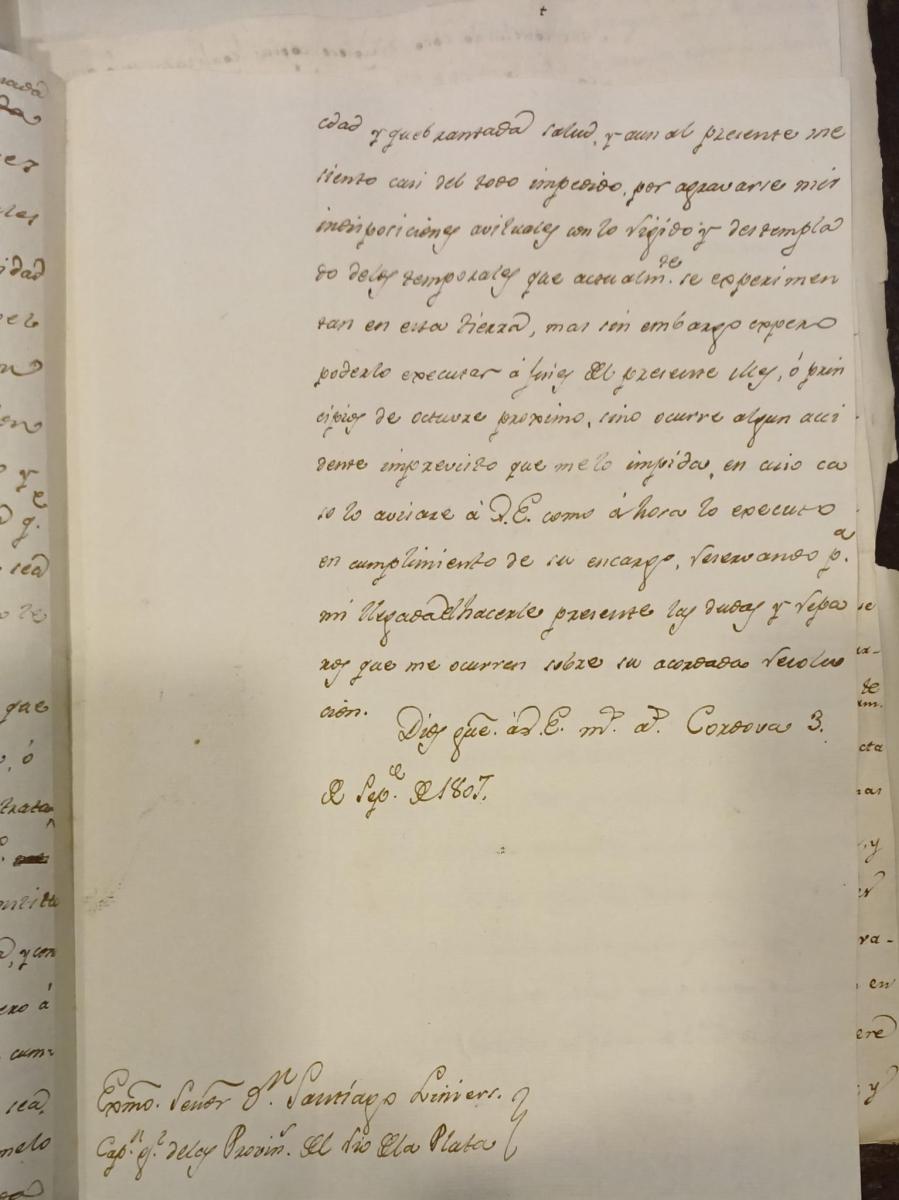 edad y quebrantada salud, y aun al presente me
siento casi del todo impedido, por agravarse mis
indisposiciones avituales con lo rigido y destempla
do delos temporales que actualm.te se experimen
tan en esta tierra, mas sin embargo espero
poderlo executar á fines del presente Mes, ó prin
cipios de octubre proximo, sino ocurre algun acci
dente imprevisto que me lo impida, en cuio ca
so lo avisare á V.E. como áhora lo executo
en cumplimiento de su encargo, reservando p.a
mi llegada el hacerle presente las dudas y repa
ros que me ocurren sobre su acordada resolu
cion.
Dios gue. á V.E. m.s a.s Cordova 3.
de Sep.e de 1807.
Exmo. Señor D.n Santiago Liniers.
Cap.n g.l delas Provin.s del rio dela Plata
nada
da
idad
y
q.e
sea
que
, ó
trata
, y con
ero á
cum-
sea
melo
se
te
cta
, y
va-
en
ere
y